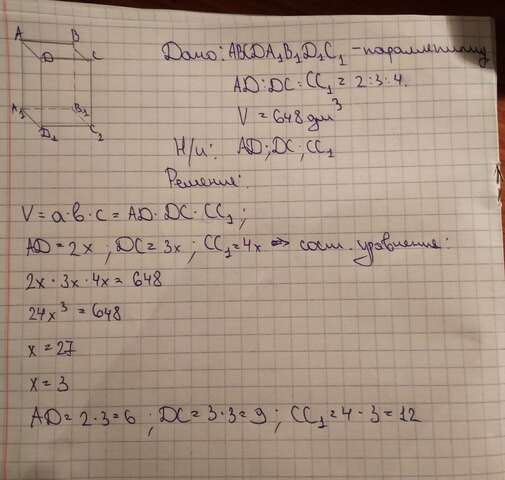 A B
D C
A₁ B₁
D₁ C₂
Дано: ABCDA₁B₁D₁C₁ - параллепипед
AD:DC:CC₁ = 2:3:4.
V = 648 дм³
Н/и: AD; DC; CC₁
Решение:
V = a·b·c = AD·DC·CC₁;
AD = 2x ; DC = 3x ; CC₁ = 4x => сост. уравнение:
2x · 3x · 4x = 648
24x³ = 648
x = 27
x = 3
AD = 2·3 = 6 ; DC = 3·3 = 9 ; CC₁ = 4·3 = 12